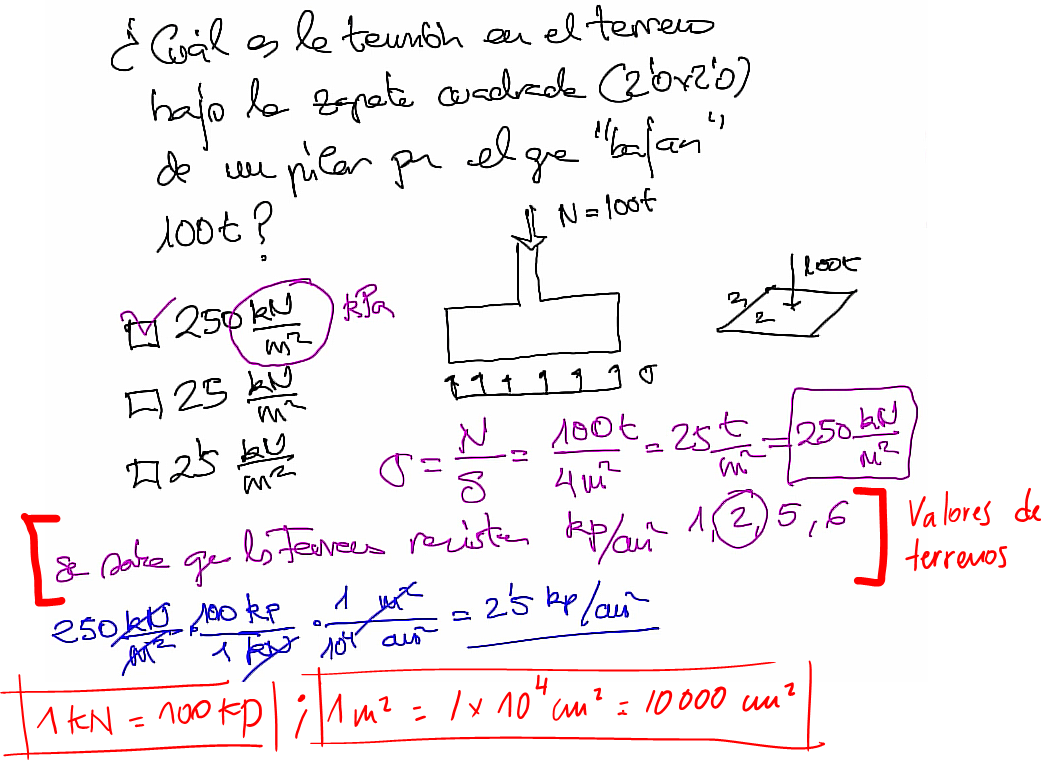 ¿Cuál es la tensión en el terreno
bajo la zapata cuadrada (2'0x2'0)
de un pilar por el que "bajan"
100t?
N = 100t
100t
2
2
☑ 250 kN/m² kPa
☐ 25 kN/m²
☐ 2'5 kN/m²
σ
σ = N/S = 100t/4m² = 25 t/m² = 250 kN/m²
[se sabe que los terrenos resisten kp/cm² 1, 2, 5, 6] Valores de
terrenos
250 kN/m² · 100 kp/1 kN · 1 m²/10⁴ cm² = 2'5 kp/cm²
1 kN = 100 kp ; 1 m² = 1 x 10⁴ cm² = 10000 cm²